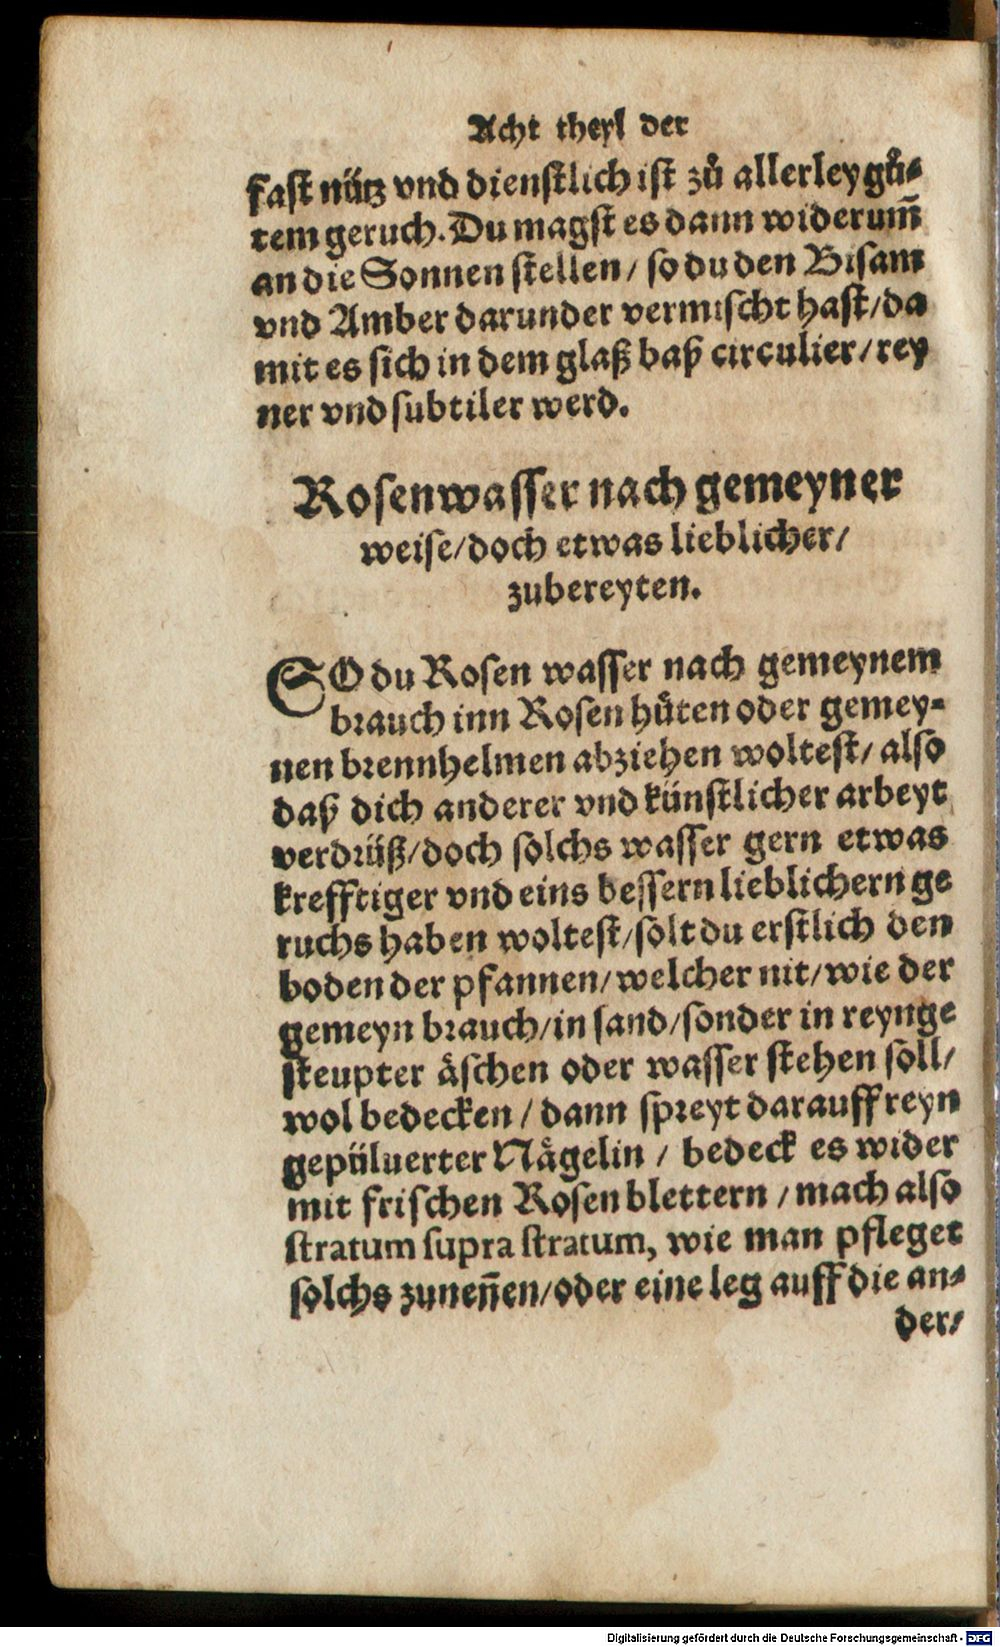 Acht theyl der
fast nütz vnd dienstlich ist zů allerley gů-
tem geruch. Du magst es dann widerum̃
an die Sonnen stellen / so du den Bisam
vnd Amber darunder vermischt hast / da
mit es sich in dem glaß baß circulier / rey
ner vnd subtiler werd.
Rosenwasser nach gemeyner
weise / doch etwas lieblicher /
zubereyten.
SO du Rosen wasser nach gemeynem
brauch inn Rosen hůten oder gemey-
nen brennhelmen abziehen woltest / also
daß dich anderer vnd künstlicher arbeyt
verdrüß / doch solchs wasser gern etwas
krefftiger vnd eins bessern lieblichern ge
ruchs haben woltest / solt du erstlich den
boden der pfannen / welcher nit / wie der
gemeyn brauch / in sand / sonder in reynge
steupter äschen oder wasser stehen soll /
wol bedecken / dann spreyt darauff reyn
gepüluerter Nägelin / bedeck es wider
mit frischen Rosen blettern / mach also
stratum supra stratum, wie man pfleget
solchs zunen̄en / oder eine leg auff die an-
der /
Digitalisierung gefördert durch die Deutsche Forschungsgemeinschaft - DFG